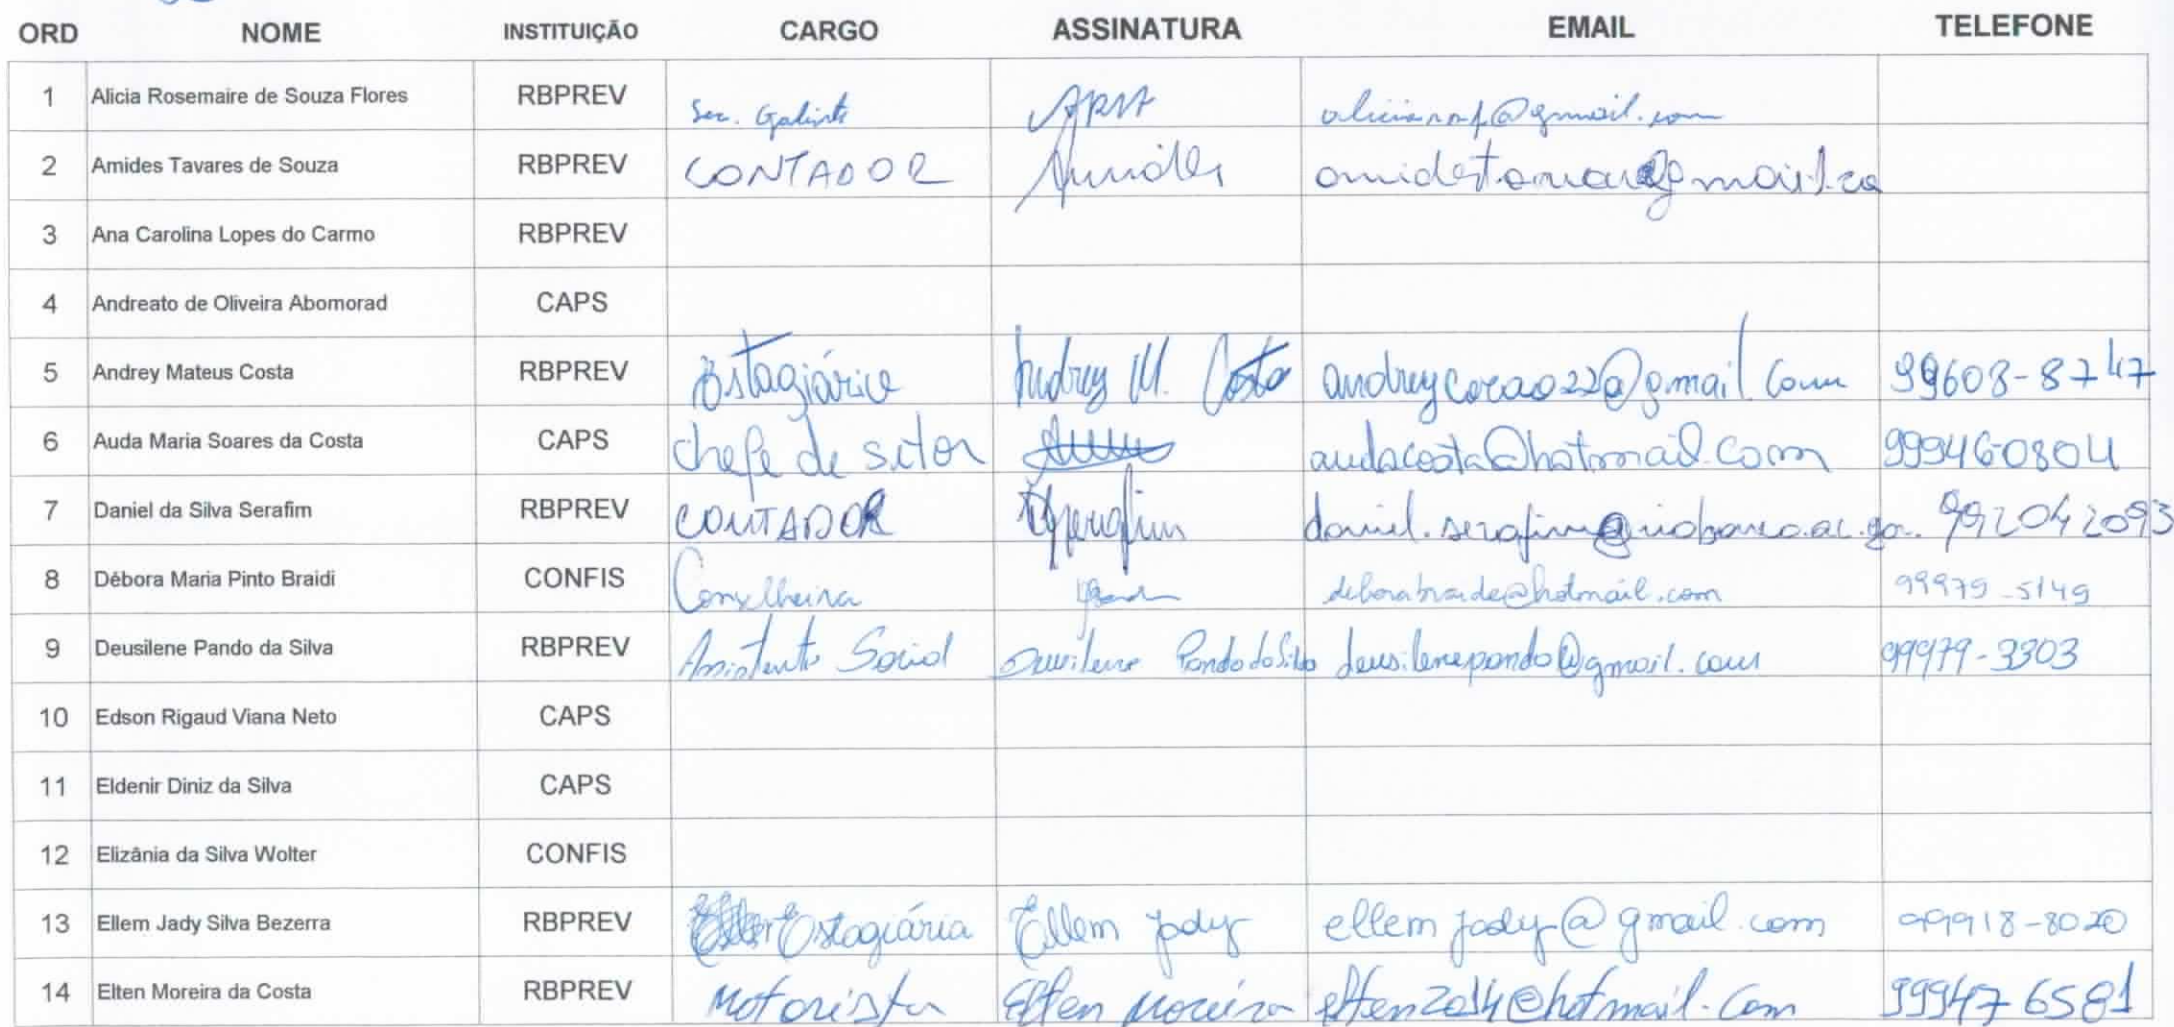 ORD NOME INSTITUIÇÃO CARGO ASSINATURA EMAIL TELEFONE
1 Alicia Rosemaire de Souza Flores RBPREV Sec.
2 Amides Tavares de Souza RBPREV CONTADOR Amides
3 Ana Carolina Lopes do Carmo RBPREV
4 Andreato de Oliveira Abomorad CAPS
5 Andrey Mateus Costa RBPREV Estagiário Andrey M. Costa 99608-8747
6 Auda Maria Soares da Costa CAPS chefe de setor audacosta@hotmail.com 99946-0804
7 Daniel da Silva Serafim RBPREV CONTADOR DSerafim 992042093
8 Débora Maria Pinto Braidi CONFIS Conselheira deborabraide@hotmail.com 99979-5149
9 Deusilene Pando da Silva RBPREV Assistente Social Deusilene Pando da Silva deusilenepando@gmail.com 99979-3303
10 Edson Rigaud Viana Neto CAPS
11 Eldenir Diniz da Silva CAPS
12 Elizânia da Silva Wolter CONFIS
13 Ellem Jady Silva Bezerra RBPREV Estagiária Ellem Jady ellemjady@gmail.com 99918-8020
14 Elten Moreira da Costa RBPREV Motorista Elten Moreira elten2014@hotmail.com 999476581